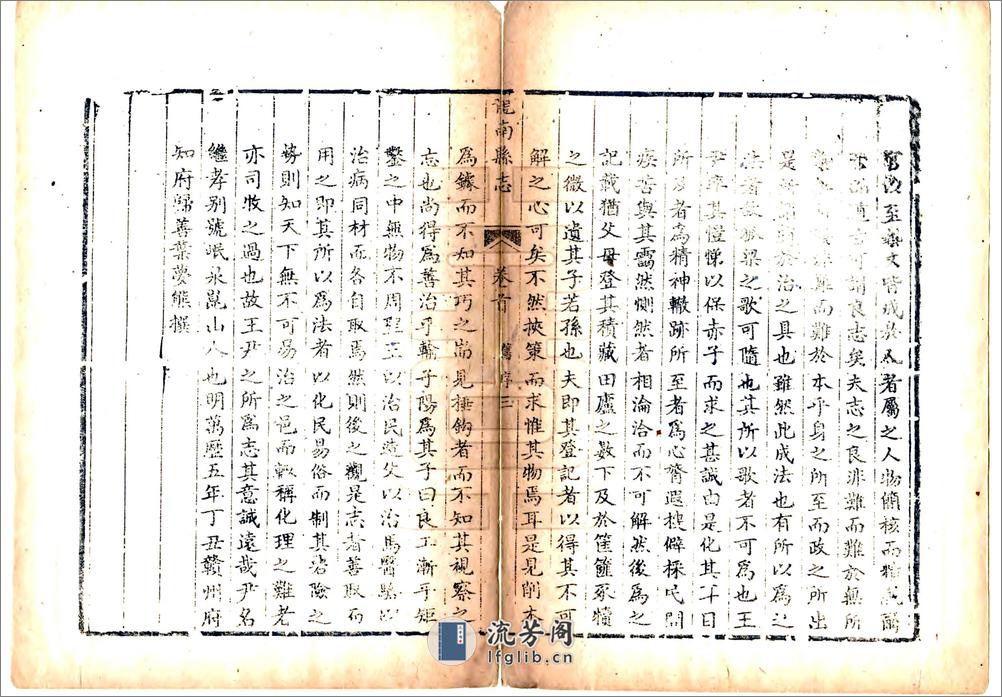 至
文
成
者屬之人物簡核而
可謂良志矣夫志之良非難而難於無所
難而難於本乎身之所至而政之所出
是
於治之具也雖然此成法也有所以為之
之歌可隨也其所以歌者不可為也王
尹率其愷悌以保赤子而求之甚誠由是化其
所及者為精神轍跡所至者為心膂遐搜僻採民間
疾苦與其靄然惻然者相淪洽而不可解然後為之
記載猶父母登其積藏田廬之數下及於筐篋豕犢
之微以遺其子若孫也夫即其登記者以得其不可
解之心可矣不然挾策而求惟其物焉耳是見削木
龍南縣志 卷首 舊序 三
為鐻而不知其巧之耑見捶鈎者而不知其視察之
志也尚得為善治乎輪子陽為其子曰良工漸乎矩
鑿之中無物不周聖王以治民造父以治馬醫駱以
治病同材而各自取焉然則後之觀是志者善取而
用之即其所以為法者以化民易俗而制其沿險之
勢則知天下無不可易治之邑而輒稱化理之難者
亦司牧之過也故王尹之所為志其意誠遠哉尹名
繼孝別號岷泉崑山人也明萬歷五年丁丑贛州府
知府歸善葉夢熊撰
流芳閣
lfglib.cn